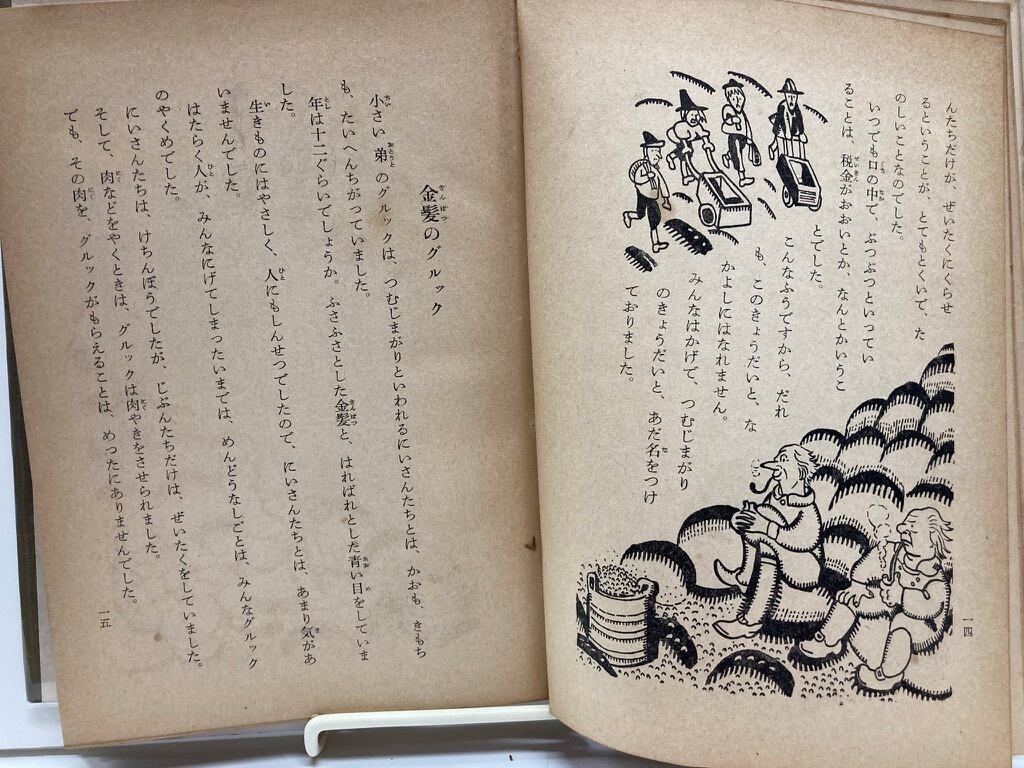 んたちだけが、ぜいたくにくらせ
るということが、とてもとくいで、た
のしいことなのでした。
いつても口の中で、ぶつぶつといってい
ることは、税金がおおいとか、なんとかいうこ
とでした。
こんなふうですから、だれ
も、このきょうだいと、な
かよしにはなれません。
みんなはかげで、つむじまがり
のきょうだいと、あだ名をつけ
ておりました。
一四
金髪のグルック
小さい弟のグルックは、つむじまがりといわれるにいさんたちとは、かおも、きもち
も、たいへんちがっていました。
年は十二ぐらいでしょうか。ふさふさとした金髪と、はればれとした青い目をしていま
した。
生きものにはやさしく、人にもしんせつでしたので、にいさんたちとは、あまり気があ
いませんでした。
はたらく人が、みんなにげてしまったいまでは、めんどうなしごとは、みんなグルック
のやくめでした。
にいさんたちは、けちんぼうでしたが、じぶんたちだけは、ぜいたくをしていました。
そして、肉などをやくときは、グルックは肉やきをさせられました。
でも、その肉を、グルックがもらえることは、めったにありませんでした。
一五